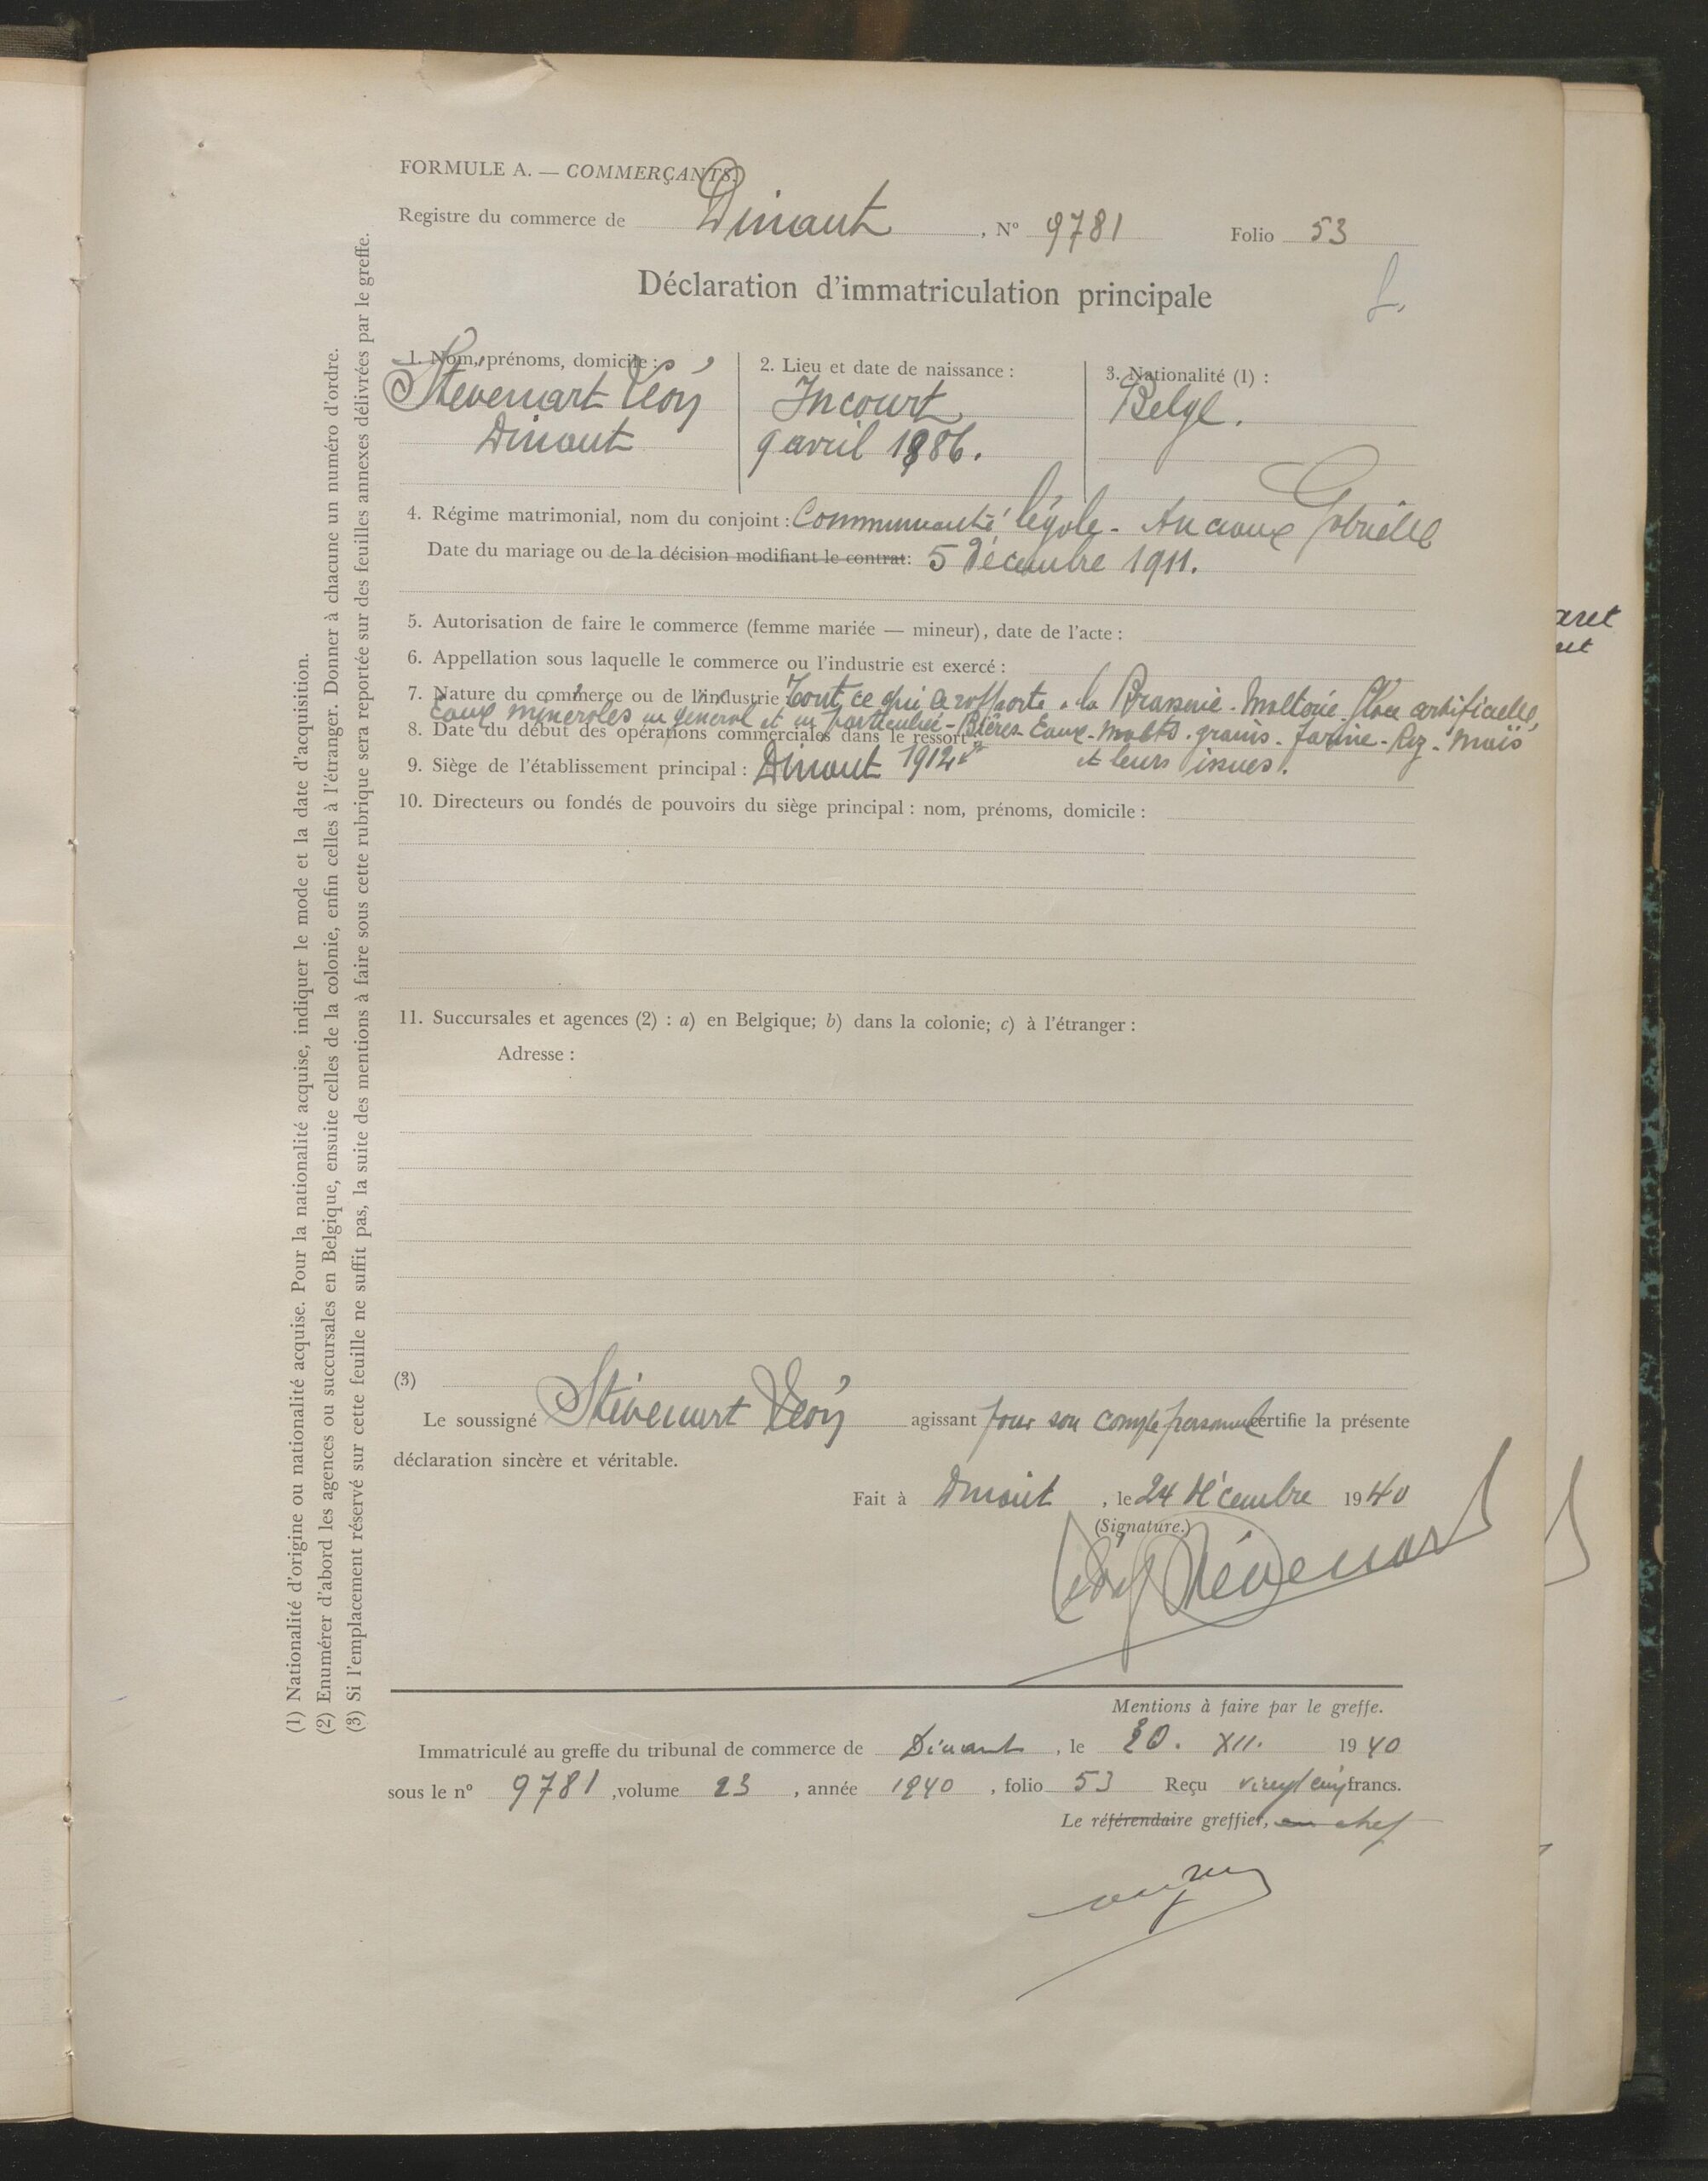 FORMULE A. — COMMERÇANTS.
Registre du commerce de Dinant, N° 9781 Folio 53
Déclaration d'immatriculation principale
1. Nom, prénoms, domicile :
Stévenart Léon
Dinant
2. Lieu et date de naissance :
Incourt
9 avril 1886.
3. Nationalité (1) :
Belge.
4. Régime matrimonial, nom du conjoint : Communauté légale - Anciaux Gabrielle
Date du mariage ou de la décision modifiant le contrat: 5 Décembre 1911.
5. Autorisation de faire le commerce (femme mariée — mineur), date de l'acte :
6. Appellation sous laquelle le commerce ou l'industrie est exercé :
7. Nature du commerce ou de l'industrie : Tout ce qui a rapporte à la Brasserie - Malterie - Glace artificielle,
Eaux minérales en général et en particulier - Bières - Eaux - Malts - grains - farine - Riz - Maïs
8. Date du début des opérations commerciales dans le ressort :
et leurs issues.
9. Siège de l'établissement principal : Dinant 1912
10. Directeurs ou fondés de pouvoirs du siège principal : nom, prénoms, domicile :
11. Succursales et agences (2) : a) en Belgique; b) dans la colonie; c) à l'étranger :
Adresse :
(3)
Le soussigné Stévenart Léon agissant pour son compte personnel certifie la présente
déclaration sincère et véritable.
Fait à Dinant, le 24 Décembre 1940
(Signature.)
Léon Stévenart
Mentions à faire par le greffe.
Immatriculé au greffe du tribunal de commerce de Dinant, le 30. XII. 1940
sous le n° 9781, volume 23, année 1940, folio 53 Reçu vingt cinq francs.
Le référendaire greffier, en chef
(1) Nationalité d'origine ou nationalité acquise. Pour la nationalité acquise, indiquer le mode et la date d'acquisition.
(2) Enumérer d'abord les agences ou succursales en Belgique, ensuite celles de la colonie, enfin celles à l'étranger. Donner à chacune un numéro d'ordre.
(3) Si l'emplacement réservé sur cette feuille ne suffit pas, la suite des mentions à faire sous cette rubrique sera reportée sur des feuilles annexes délivrées par le greffe.